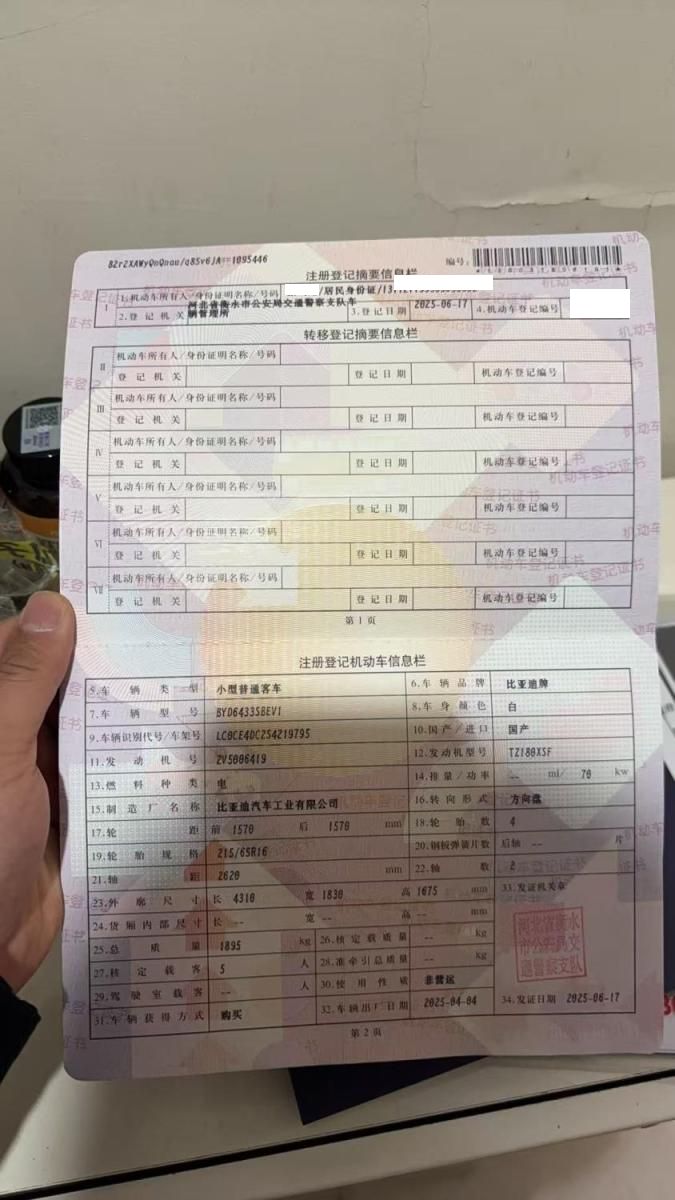 82r2XAWyQnQnau/q85v6jA==1095446
编号:
注册登记摘要信息栏
I 1.机动车所有人/身份证明名称/号码 /居民身份证/
2.登记机关 河北省衡水市公安局交通警察支队车辆管理所 3.登记日期 2025-06-17 4.机动车登记编号
转移登记摘要信息栏
II 机动车所有人/身份证明名称/号码
登记机关 登记日期 机动车登记编号
III 机动车所有人/身份证明名称/号码
登记机关 登记日期 机动车登记编号
IV 机动车所有人/身份证明名称/号码
登记机关 登记日期 机动车登记编号
V 机动车所有人/身份证明名称/号码
登记机关 登记日期 机动车登记编号
VI 机动车所有人/身份证明名称/号码
登记机关 登记日期 机动车登记编号
VII 机动车所有人/身份证明名称/号码
登记机关 登记日期 机动车登记编号
第1页
注册登记机动车信息栏
5.车辆类型 小型普通客车 6.车辆品牌 比亚迪牌
7.车辆型号 BYD6433SBEV1 8.车身颜色 白
9.车辆识别代号/车架号 LC0CE4DC2S4219795 10.国产/进口 国产
11.发动机号 ZV5006419 12.发动机型号 TZ180XSF
13.燃料种类 电 14.排量/功率 -- ml/ 70 kw
15.制造厂名称 比亚迪汽车工业有限公司 16.转向形式 方向盘
17.轮距 前 1570 后 1570 mm 18.轮胎数 4
19.轮胎规格 215/65R16 20.钢板弹簧片数 后轴 -- 片
21.轴距 2620 mm 22.轴数 2
23.外廓尺寸 长 4310 宽 1830 高 1675 mm 33.发证机关章
24.货厢内部尺寸 长 -- 宽 -- 高 -- mm
25.总质量 1895 kg 26.核定载质量 -- kg
27.核定载客 5 人 28.准牵引总质量 -- kg
29.驾驶室载客 -- 人 30.使用性质 非营运
31.车辆获得方式 购买 32.车辆出厂日期 2025-04-04 34.发证日期 2025-06-17
河北省衡水
市公安局交
通警察支队
第2页
机动车登记证书